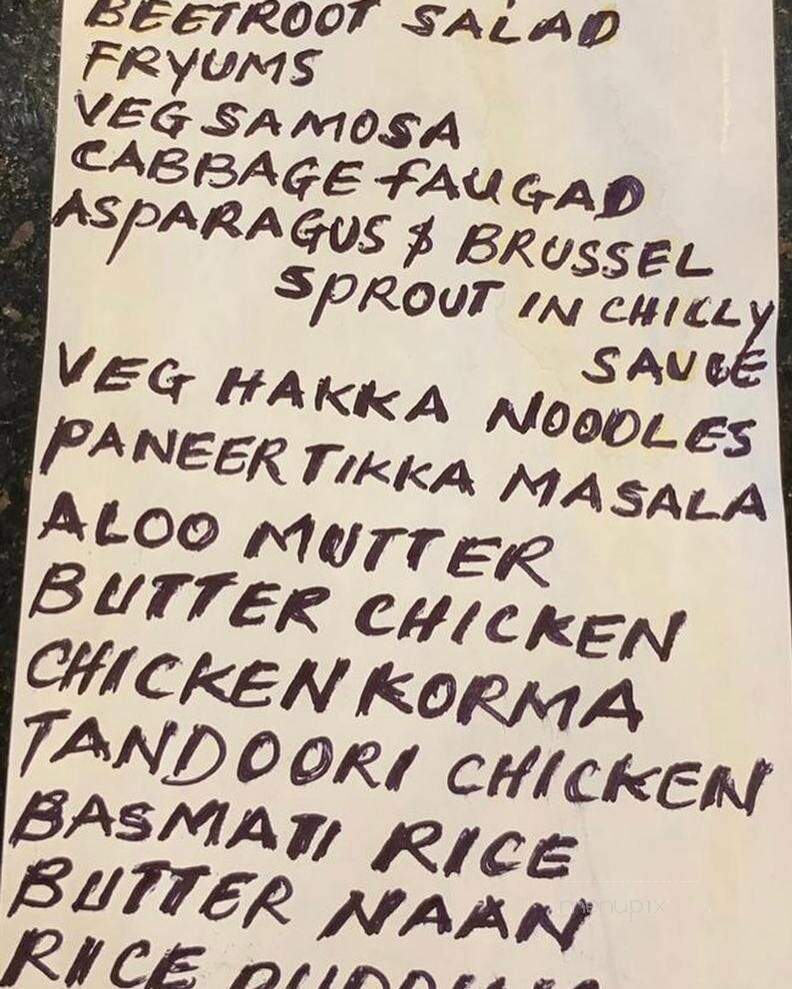 BEETROOT SALAD
FRYUMS
VEG SAMOSA
CABBAGE FAUGAD
ASPARAGUS & BRUSSEL
SPROUT IN CHILLY
SAUCE
VEG HAKKA NOODLES
PANEER TIKKA MASALA
ALOO MUTTER
BUTTER CHICKEN
CHICKEN KORMA
TANDOORI CHICKEN
BASMATI RICE
BUTTER NAAN
menupix
RICE PUDDING